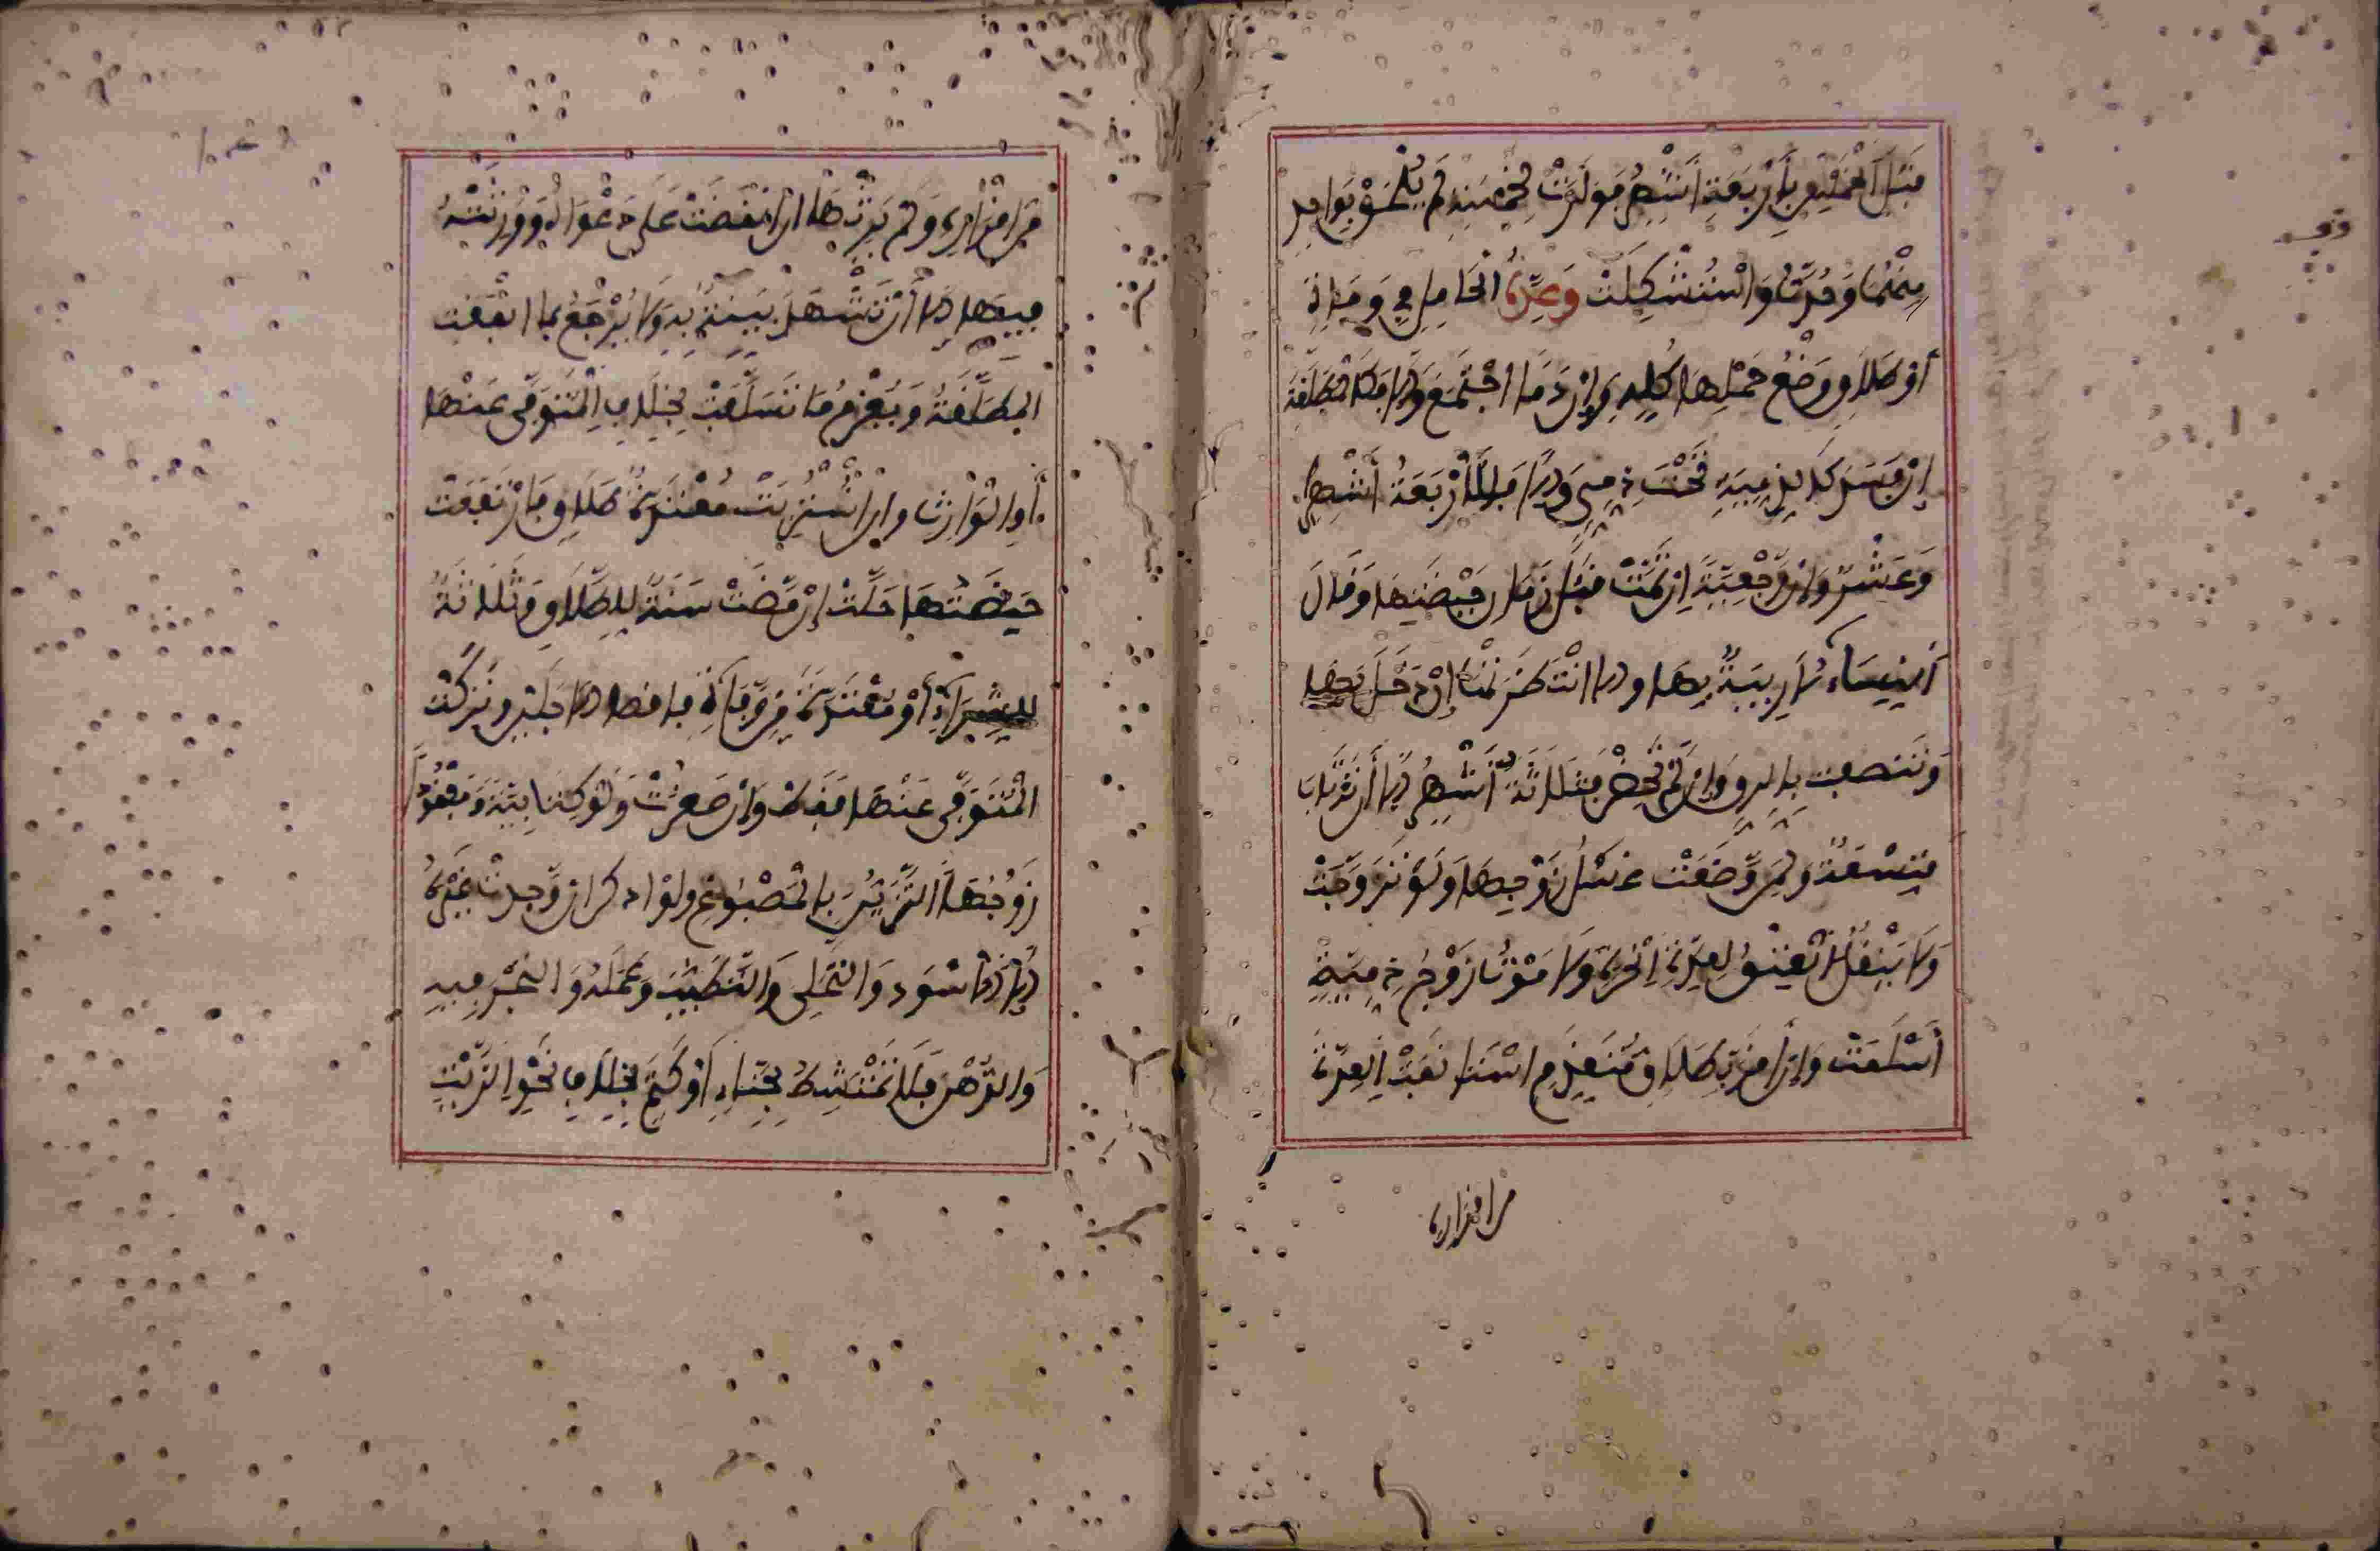 قَبْلَ الْخَمْسِ بِأَرْبَعَةِ أَشْهُرٍ فَوَلَدَتْ لِخَمْسَةٍ لَمْ يُلْحَقْ بِوَاحِدٍ
مِنْهُمَا وَحُدَّتْ وَاسْتُشْكِلَتْ وَعِدَّةُ الْحَامِلِ فِي وَفَاةٍ
أَوْ طَلَاقٍ وَضْعُ حَمْلِهَا كُلِّهِ وَإِنْ دَمًا اجْتَمَعَ وَإِلَّا فَكَالْمُطَلَّقَةِ
إِنْ فَسَدَ كَالذِّمِّيَّةِ تَحْتَ ذِمِّيٍّ وَإِلَّا فَالْأَرْبَعَةُ أَشْهُرٍ
وَعَشْرٌ وَإِنْ رَجْعِيَّةً إِنْ تَمَّتْ قَبْلَ زَمَانِ حَيْضَتِهَا وَقَالَ
النِّسَاءُ لَا رِيبَةَ بِهَا وَإِلَّا انْتَظَرَتْهَا إِنْ دَخَلَ بِهَا
وَتَنَصَّفَتْ بِالرِّقِّ وَإِنْ لَمْ تَحِضْ فَثَلَاثَةُ أَشْهُرٍ إِلَّا أَنْ تَرْتَابَ
فَتِسْعَةٌ وَلِمَنْ وَضَعَتْ غَسْلُ زَوْجِهَا وَلَوْ تَزَوَّجَتْ
وَلَا يَنْقُلُ الْعِتْقُ لِعِدَّةِ الْحُرَّةِ وَلَا مَوْتُ زَوْجِ ذِمِّيَّةٍ
أَسْلَمَتْ وَإِنْ أَقَرَّ بِطَلَاقٍ مُتَقَدِّمٍ اسْتَأْنَفَتِ الْعِدَّةَ
من إقراره
وقف
مِنْ إِقْرَارِهِ وَلَمْ يَرِثْهَا إِنِ انْقَضَتْ عَلَى دَعْوَاهُ وَوَرِثَتْهُ
فِيهَا إِلَّا أَنْ تَشْهَدَ بَيِّنَةٌ بِهِ وَلَا يُرْجَعُ بِمَا أَنْفَقَتْ
الْمُطَلَّقَةُ وَيُغْرَمُ مَا تَسَلَّفَتْ بِخِلَافِ الْمُتَوَفَّى عَنْهَا
أَوِ الْوَارِثِ وَإِنِ اشْتُرِيَتْ مُعْتَدَّةُ طَلَاقٍ فَارْتَفَعَتْ
حَيْضَتُهَا حَلَّتْ إِنْ مَضَتْ سَنَةٌ لِلطَّلَاقِ وَثَلَاثَةٌ
لِلشِّرَاءِ أَوْ مُعْتَدَّةٌ مِنْ وَفَاةٍ فَأَقْصَى الْأَجَلَيْنِ وَتَرَكَتْ
الْمُتَوَفَّى عَنْهَا فَقَطْ وَإِنْ صَغُرَتْ وَلَوْ كِتَابِيَّةً وَمَفْقُودًا
زَوْجُهَا التَّزَيُّنَ بِالْمَصْبُوغِ وَلَوْ أَدْكَنَ إِنْ وُجِدَتْ غَيْرُهُ
إِلَّا الْأَسْوَدَ وَالتَّحَلِّي وَالتَّطَيُّبَ وَعَمَلَهُ وَالتَّجْرَ فِيهِ
وَالدُّهْنَ فَلَا تَمْتَشِطُ بِحِنَّاءٍ أَوْ كَتَمٍ بِخِلَافِ نَحْوِ الزَّيْتِ